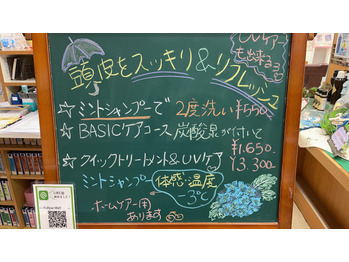 頭皮をスッキリ&リフレッシュ
UVケアー
も出来るョ
☆ミントシャンプーで 2度洗い ¥550
☆BASICケアコース 炭酸泉が付いて
¥1.650
☆クイックトリートメント&UVケア ¥3.300
ミントシャンプー 体感温度
-3℃
ホームケアー用
あります